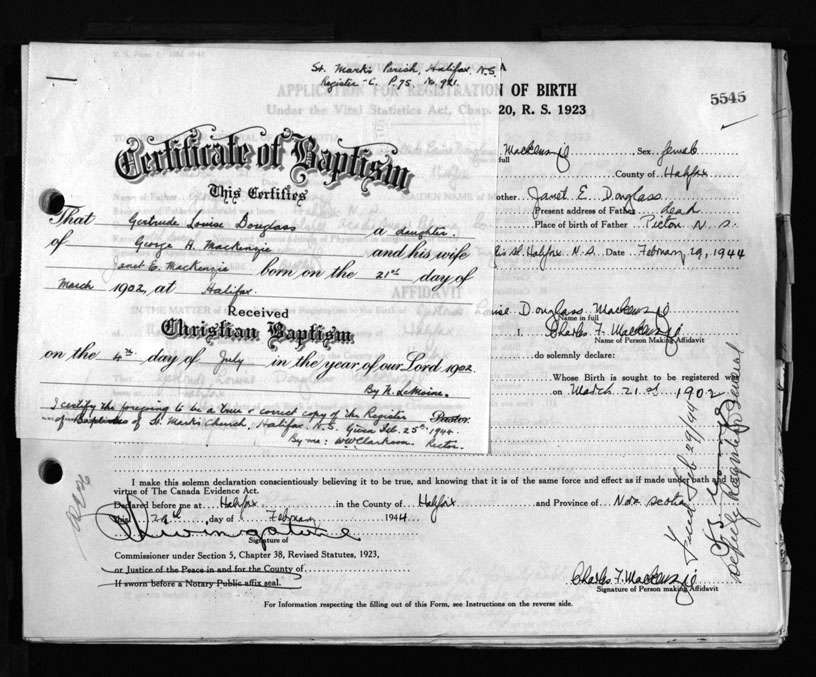 St. Mark's Parish, Halifax, N.S.
Register C. P 75 No. 981.
Certificate of Baptism
This Certifies
That Gertrude Louise Douglass a daughter
of George H. Mackenzie and his wife
Janet E. Mackenzie born on the 21st day of
March 1902, at Halifax.
Received
Christian Baptism
on the 4th day of July in the year of our Lord 1902.
By N. LeMoine.
Pastor.
I certify the foregoing to be a true & correct copy of the Register
of Baptisms of St. Mark's Church, Halifax. N.S. Given Feb. 25th 1944.
By me: W W Clarkson. Rector.
OF BIRTH
20, R. S. 1923
5545
Mackenzie Sex female
full
County of Halifax
other Janet E. Douglass
Present address of Father dead
Place of birth of Father Pictou N. S.
St. Halifax N.S. Date February 29, 1944
ise Douglass Mackenzie
Name in full
I, Charles F. Mackenzie
Name of Person Making Affidavit
do solemnly declare:
Whose Birth is sought to be registered was
on March 21st 1902
I make this solemn declaration conscientiously believing it to be true, and knowing that it is of the same force and effect as if made under oath and by
virtue of The Canada Evidence Act.
Declared before me at Halifax in the County of Halifax and Province of Nova Scotia
this day of February 1944
Signature of
Commissioner under Section 5, Chapter 38, Revised Statutes, 1923,
or Justice of the Peace in and for the County of
If sworn before a Notary Public affix seal.
Charles F. Mackenzie
Signature of Person making Affidavit
For Information respecting the filling out of this Form, see Instructions on the reverse side.
Filed Feb 29/44
Deputy Registrar General